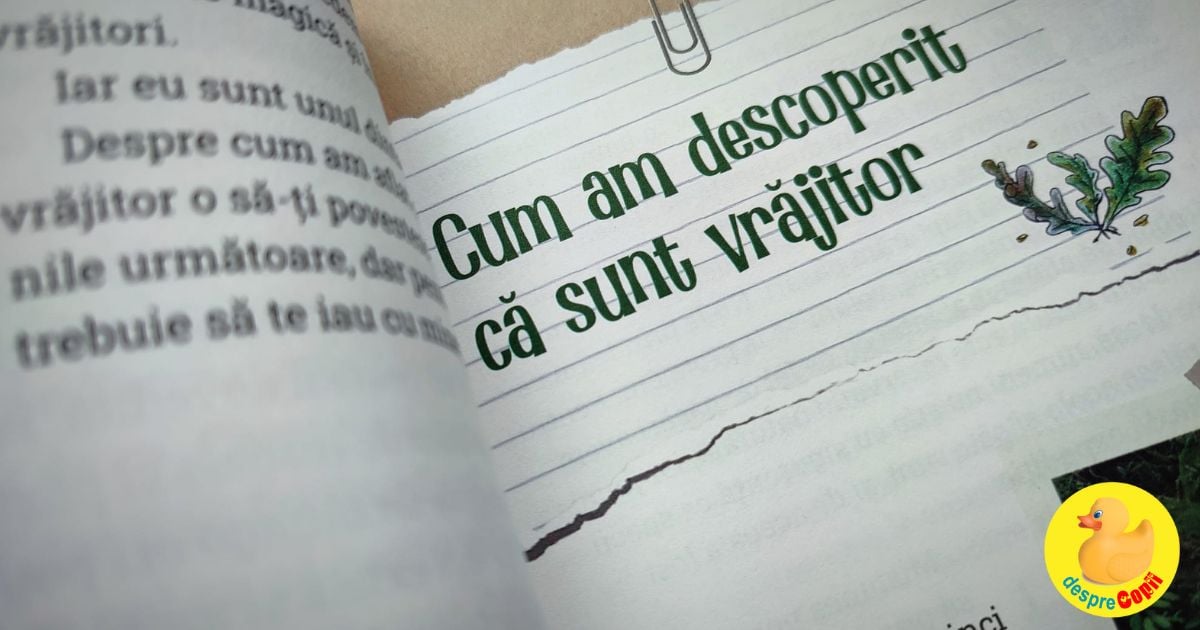 magică și
vrăjitori.
Iar eu sunt unul
Despre cum am
vrăjitor o să-ți
nile următoare, dar
trebuie să te iau cu
Cum am descoperit
că sunt vrăjitor
despre Copii